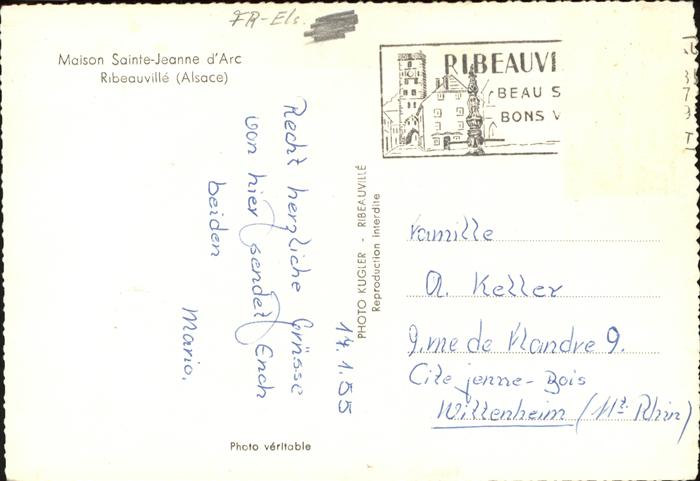 FR-Els.
Maison Sainte-Jeanne d'Arc
Ribeauvillé (Alsace)
RIBEAUVI
BEAU S
BONS V
14.1.55
Recht herzliche Grüsse
von hier sendet Euch
beiden
Mario.
PHOTO KUGLER - RIBEAUVILLÉ
Reproduction interdite
Familie
A. Keller
9. rue de Flandre 9.
Cite jeune-Bois
Wittenheim (Ht. Rhin)
Photo véritable